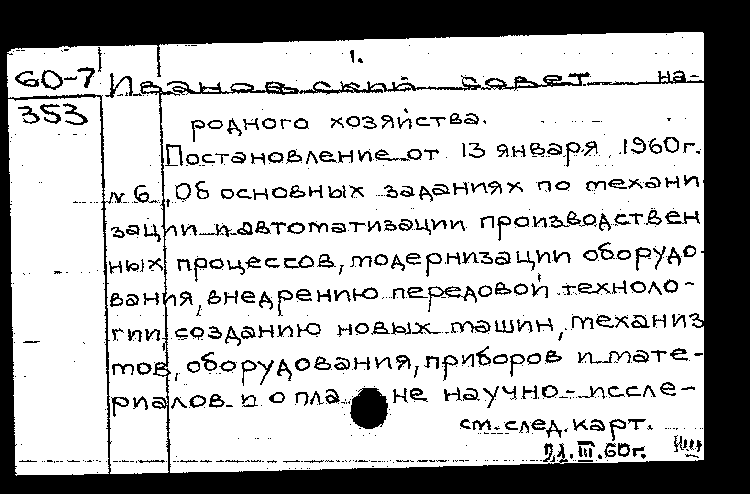 1.
60-7 Ивановский совет на-
353
родного хозяйства.
Постановление от 13 января 1960г.
№ 6 „Об основных заданиях по механи
зации и автоматизации производствен
ных процессов, модернизации оборудо-
вания, внедрению передовой техноло-
гии созданию новых машин, механиз
мов, оборудования, приборов и мате-
риалов и о плане научно-иссле-
см. след. карт.
III.60г.